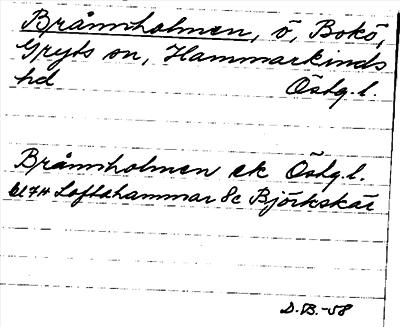 Brännholmen, ö, Bokö,
Gryts sn, Hammarkinds
hd Östg.l.
Brännholmen ek Östg.l.
6174 Loftahammar 8c Björkskär
D.B.-58